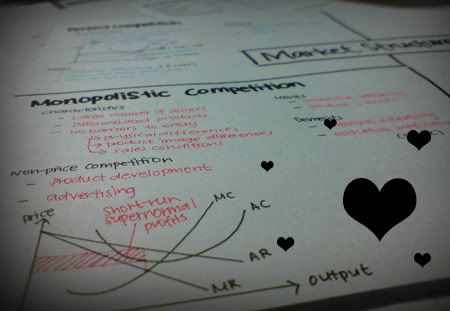 Perfect competition
Market Structure
Monopolistic Competition
characteristics
- Large number of sellers
- Differentiated products
- No barriers to entry
physical differences
product image differences
sales conditions
Merits
- product variety
Demerits
Non-price competition
- product development
- advertising
price
short-run
supernormal
profits
MC
AC
AR
MR
output